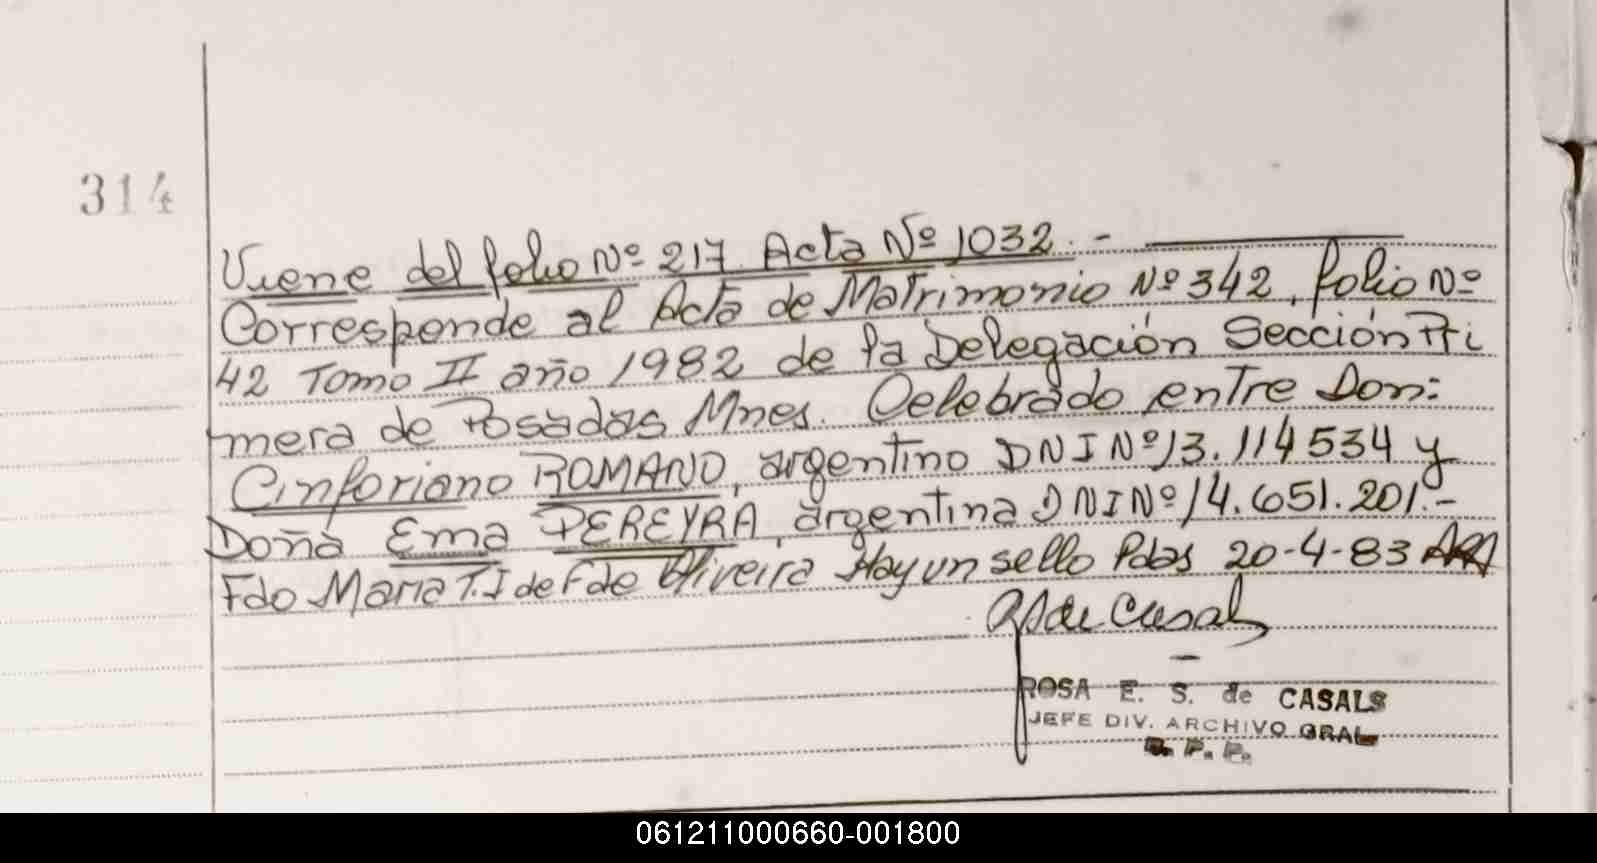 314
Viene del folio Nº 217 Acta Nº 1032.-
Corresponde al Acta de Matrimonio Nº 342, folio Nº
42 Tomo II año 1982 de la Delegación Sección Pri
mera de Posadas Mnes. Celebrado entre Don:
Cinforiano ROMANO, argentino DNI Nº 13.114534 y
Doña Ema PEREYRA, argentina DNI Nº 14.651.201.-
Fdo Maria T. I de F de Oliveira Hay un sello Pdas 20-4-83
de Casals
ROSA E. S. de CASALS
JEFE DIV. ARCHIVO GRAL
R. P. P.
061211000660-001800